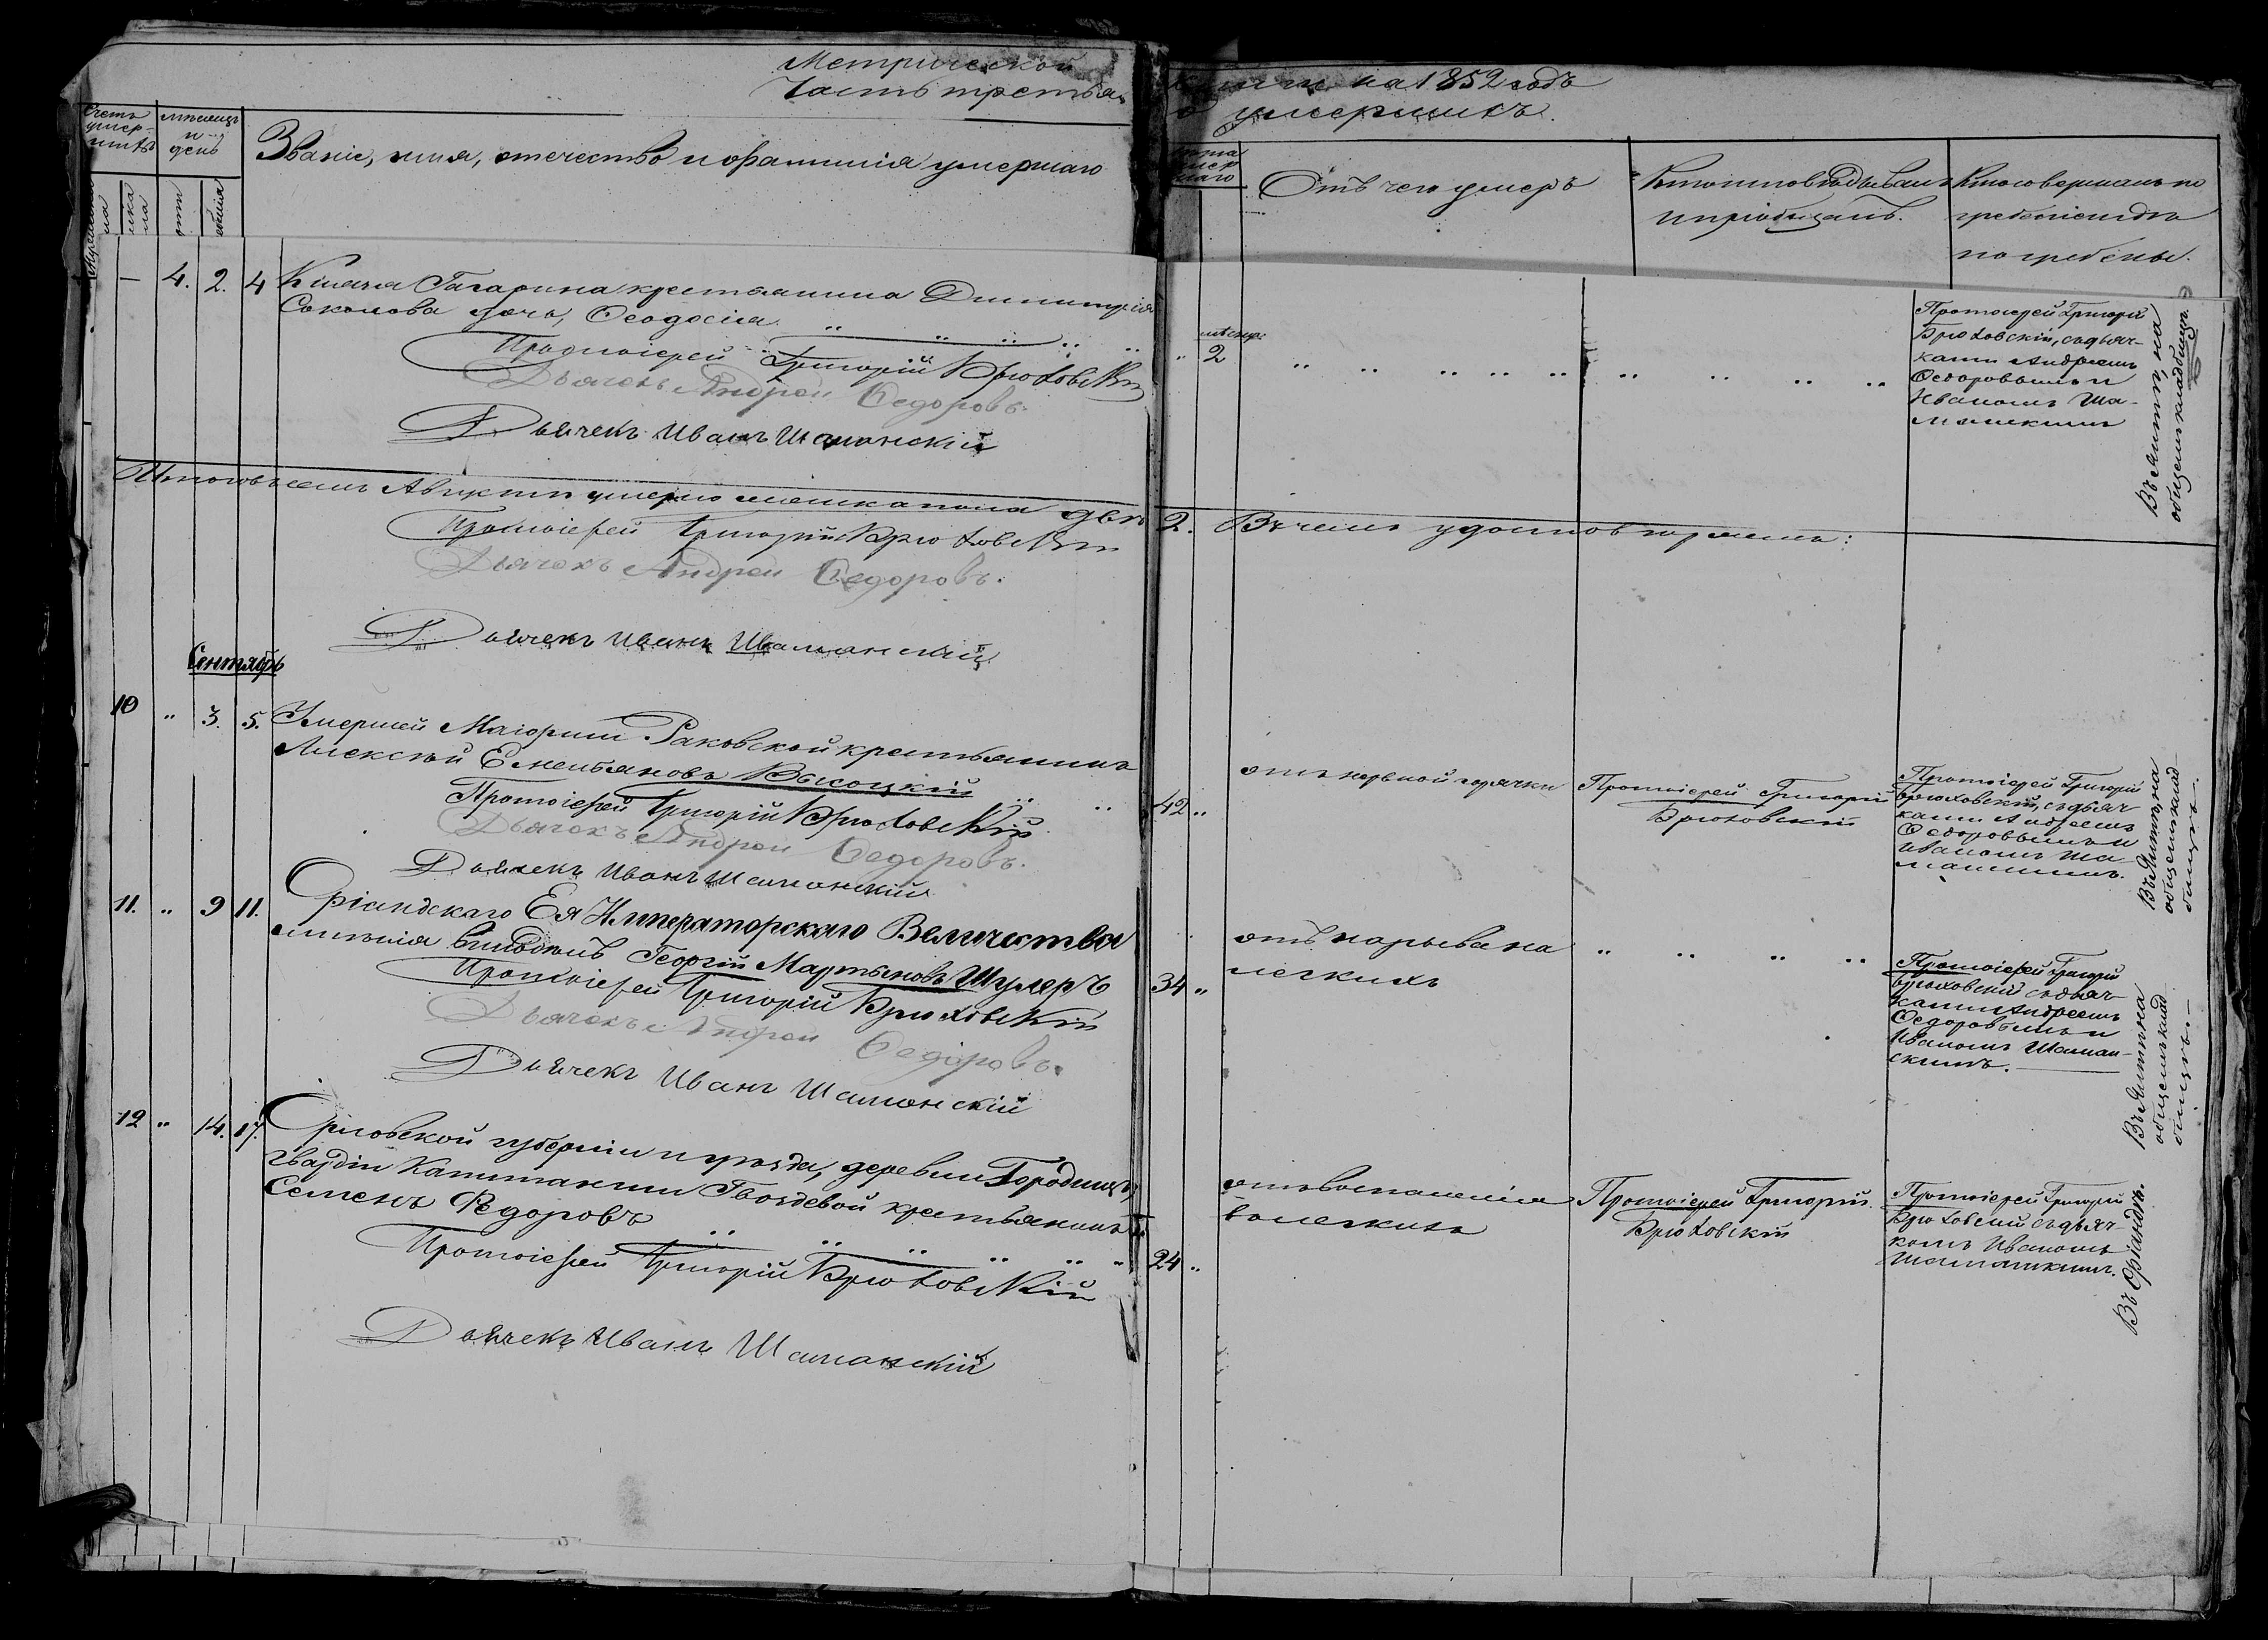 Метрической
Часть третья,
книги на 1852 годъ
о умершихъ.
Счетъ
умер-
шихъ
Мѣсяцъ
и
день
Званіе, имя, отечество и фамилія умершаго
Мужеска
па
женска
па
смерти
погребенія
Лѣта
умер
шаго
Отъ чего умеръ
Кто исповѣдывалъ
и пріобщалъ.
Кто совершалъ по
гребеніе и гдѣ
погребены.
— 4. 2. 4 Князя Гагарина крестьянина Димитрія
Соколова дочь, Ѳеодосія
Протоіерей Григорій Брюховскій
Дьячекъ Андрей Ѳедоровъ.
Дьячекъ Иванъ Шаманскій
мѣсяца
2
Протоіерей Григорій
Брюховскій, съ дьяч-
ками Андреемъ
Ѳедоровымъ и
Иваномъ Ша-
манскимъ
Въ Ялтѣ, на
общемъ кладбищѣ
Итого въ семъ Августѣ умерло женска пола двѣ
2. Въ чемъ удостовѣряемъ:
Протоіерей Григорій Брюховскій
Дьячекъ Андрей Ѳедоровъ.
Дьячекъ Иванъ Шаманскій
Сентябрь
10 " 3. 5. Умершей Маіорши Раковской крестьянинъ
Алексѣй Емельяновъ Высоцкій
Протоіерей Григорій Брюховскій
Дьячекъ Андрей Ѳедоровъ.
Дьячекъ Иванъ Шаманскій
42 "
отъ нервной горячки
Протоіерей Григорій
Брюховскій
Протоіерей Григорій
Брюховскій, съ дьяч
ками Андреемъ
Ѳедоровымъ и
Иваномъ Ша-
манскимъ.
Въ Ялтѣ, на
общемъ клад
бищѣ.
11. " 9 11. Оріандскаго Ея Императорскаго Величества
имѣнія Георгій Мартыновъ Шулеръ
Протоіерей Григорій Брюховскій
Дьячекъ Андрей Ѳедоровъ.
Дьячекъ Иванъ Шаманскій
34 "
отъ нарыва на
легкихъ
Протоіерей Григорій
Брюховскій съ дьяч-
ками Андреемъ
Ѳедоровымъ и
Иваномъ Шаман-
скимъ.
Въ Ялтѣ на
общемъ клад
бищѣ. —
12 " 14. 17. Орловской губерніи и уѣзда, деревни Городища,
гвардіи Капитанши Гвоздевой крестьянинъ
Семенъ Ѳедоровъ
Протоіерей Григорій Брюховскій
Дьячекъ Иванъ Шаманскій
24 "
отъ воспаленія
въ легкихъ
Протоіерей Григорій
Брюховскій
Протоіерей Григорій
Брюховскій съ дьяч-
комъ Иваномъ
Шаманскимъ.
Въ Оріандѣ.